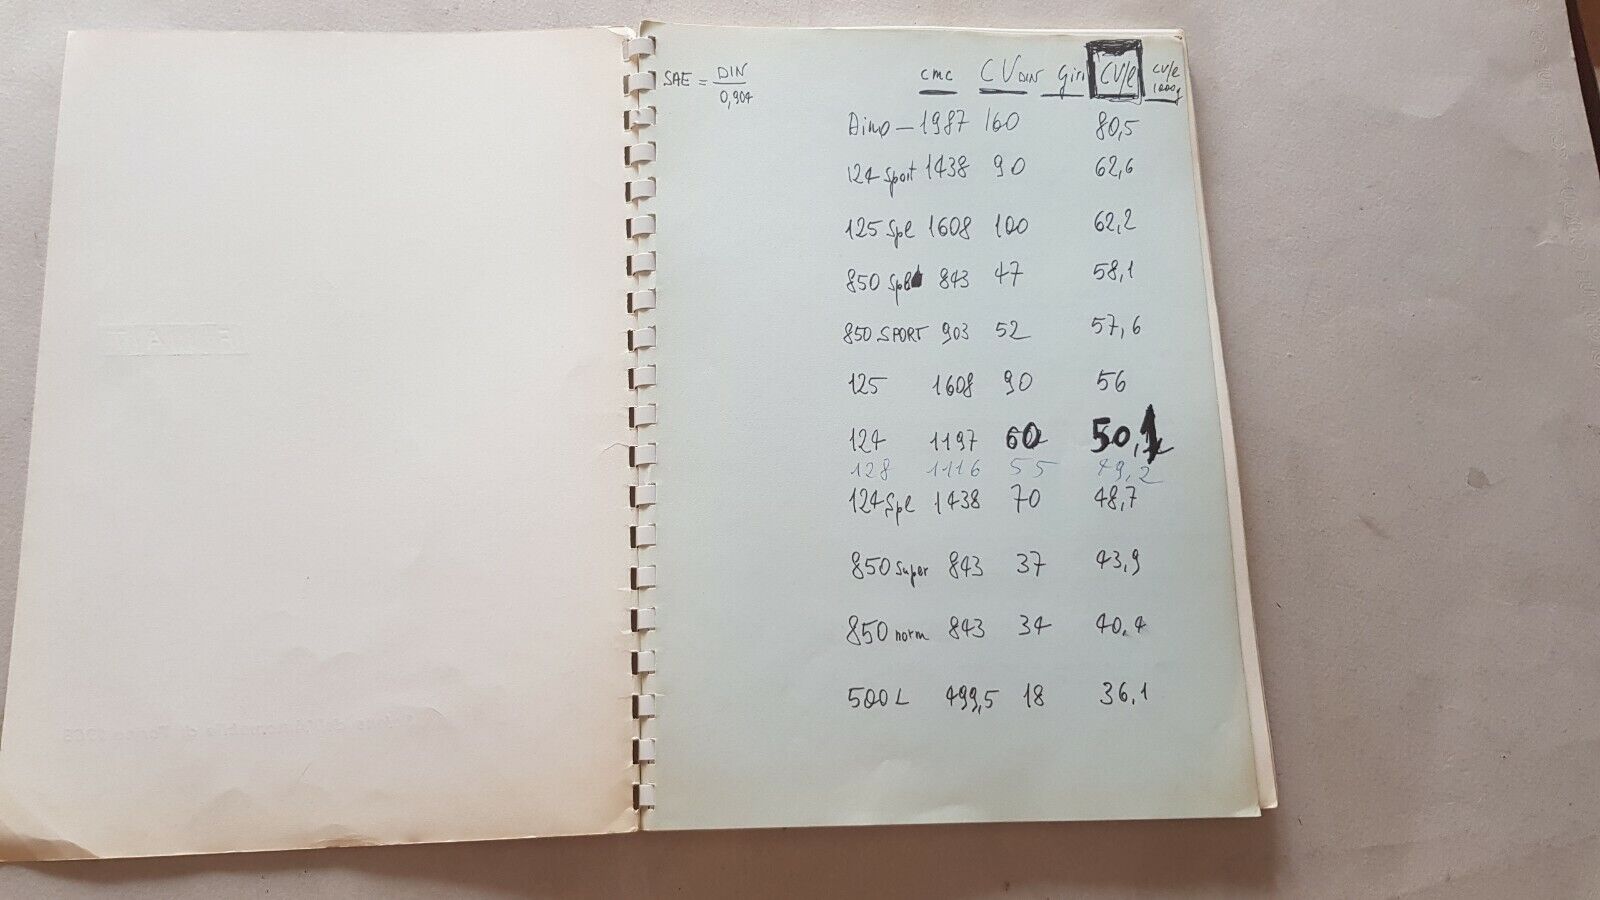 SAE = DIN / 0,904
cmc CV DIN Giri CV/l CV/l 1000g
Dino - 1987 160 80,5
124 Sport 1438 90 62,6
125 Spl 1608 100 62,2
850 Spl 843 47 58,1
850 SPORT 903 52 57,6
125 1608 90 56
124 1197 60 50,1
128 1116 55 49,2
124 Spl 1438 70 48,7
850 Super 843 37 43,9
850 norm 843 34 40,4
500 L 499,5 18 36,1